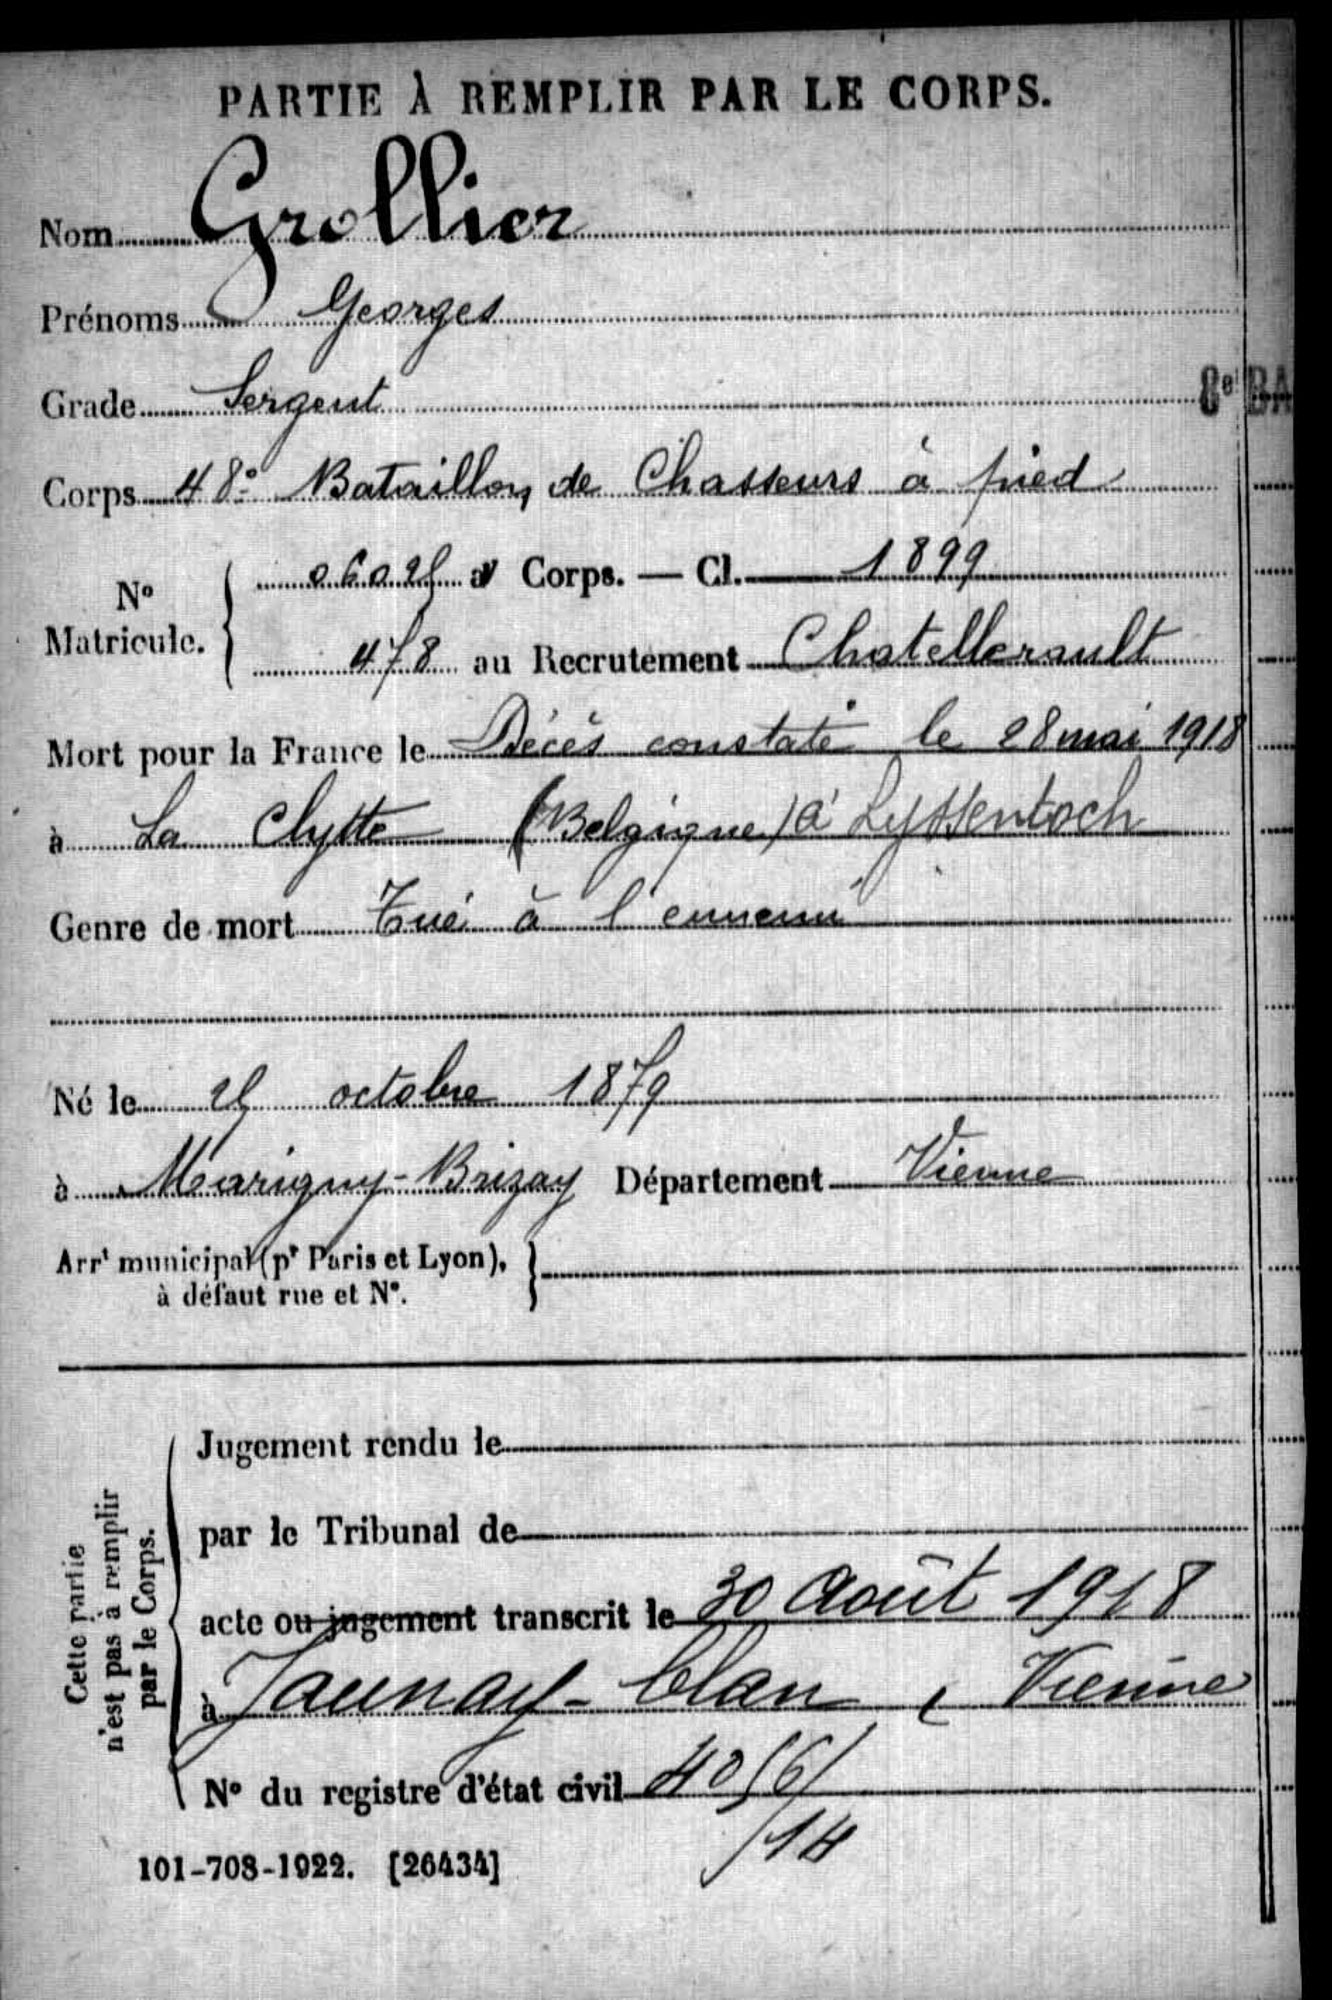 PARTIE À REMPLIR PAR LE CORPS.
Nom Grollier
Prénoms Georges
Grade Sergent
8e BA
Corps 48e Bataillon de Chasseurs à pied
No Matricule.
au Corps. — Cl. 1899
478 au Recrutement Chatellerault
Mort pour la France le Décès constaté le 28 mai 1918
à La Clytte (Belgique) à Lyssentoch
Genre de mort Tué à l'ennemi
Né le octobre 1879
à Marigny-Brizay Département Vienne
Arrt municipal (pr Paris et Lyon),
à défaut rue et No.
Cette partie
n'est pas à remplir
par le Corps.
Jugement rendu le
par le Tribunal de
acte ou jugement transcrit le 30 Août 1918
à Jaunay-Clan, Vienne
No du registre d'état civil
101-708-1922. [26434]